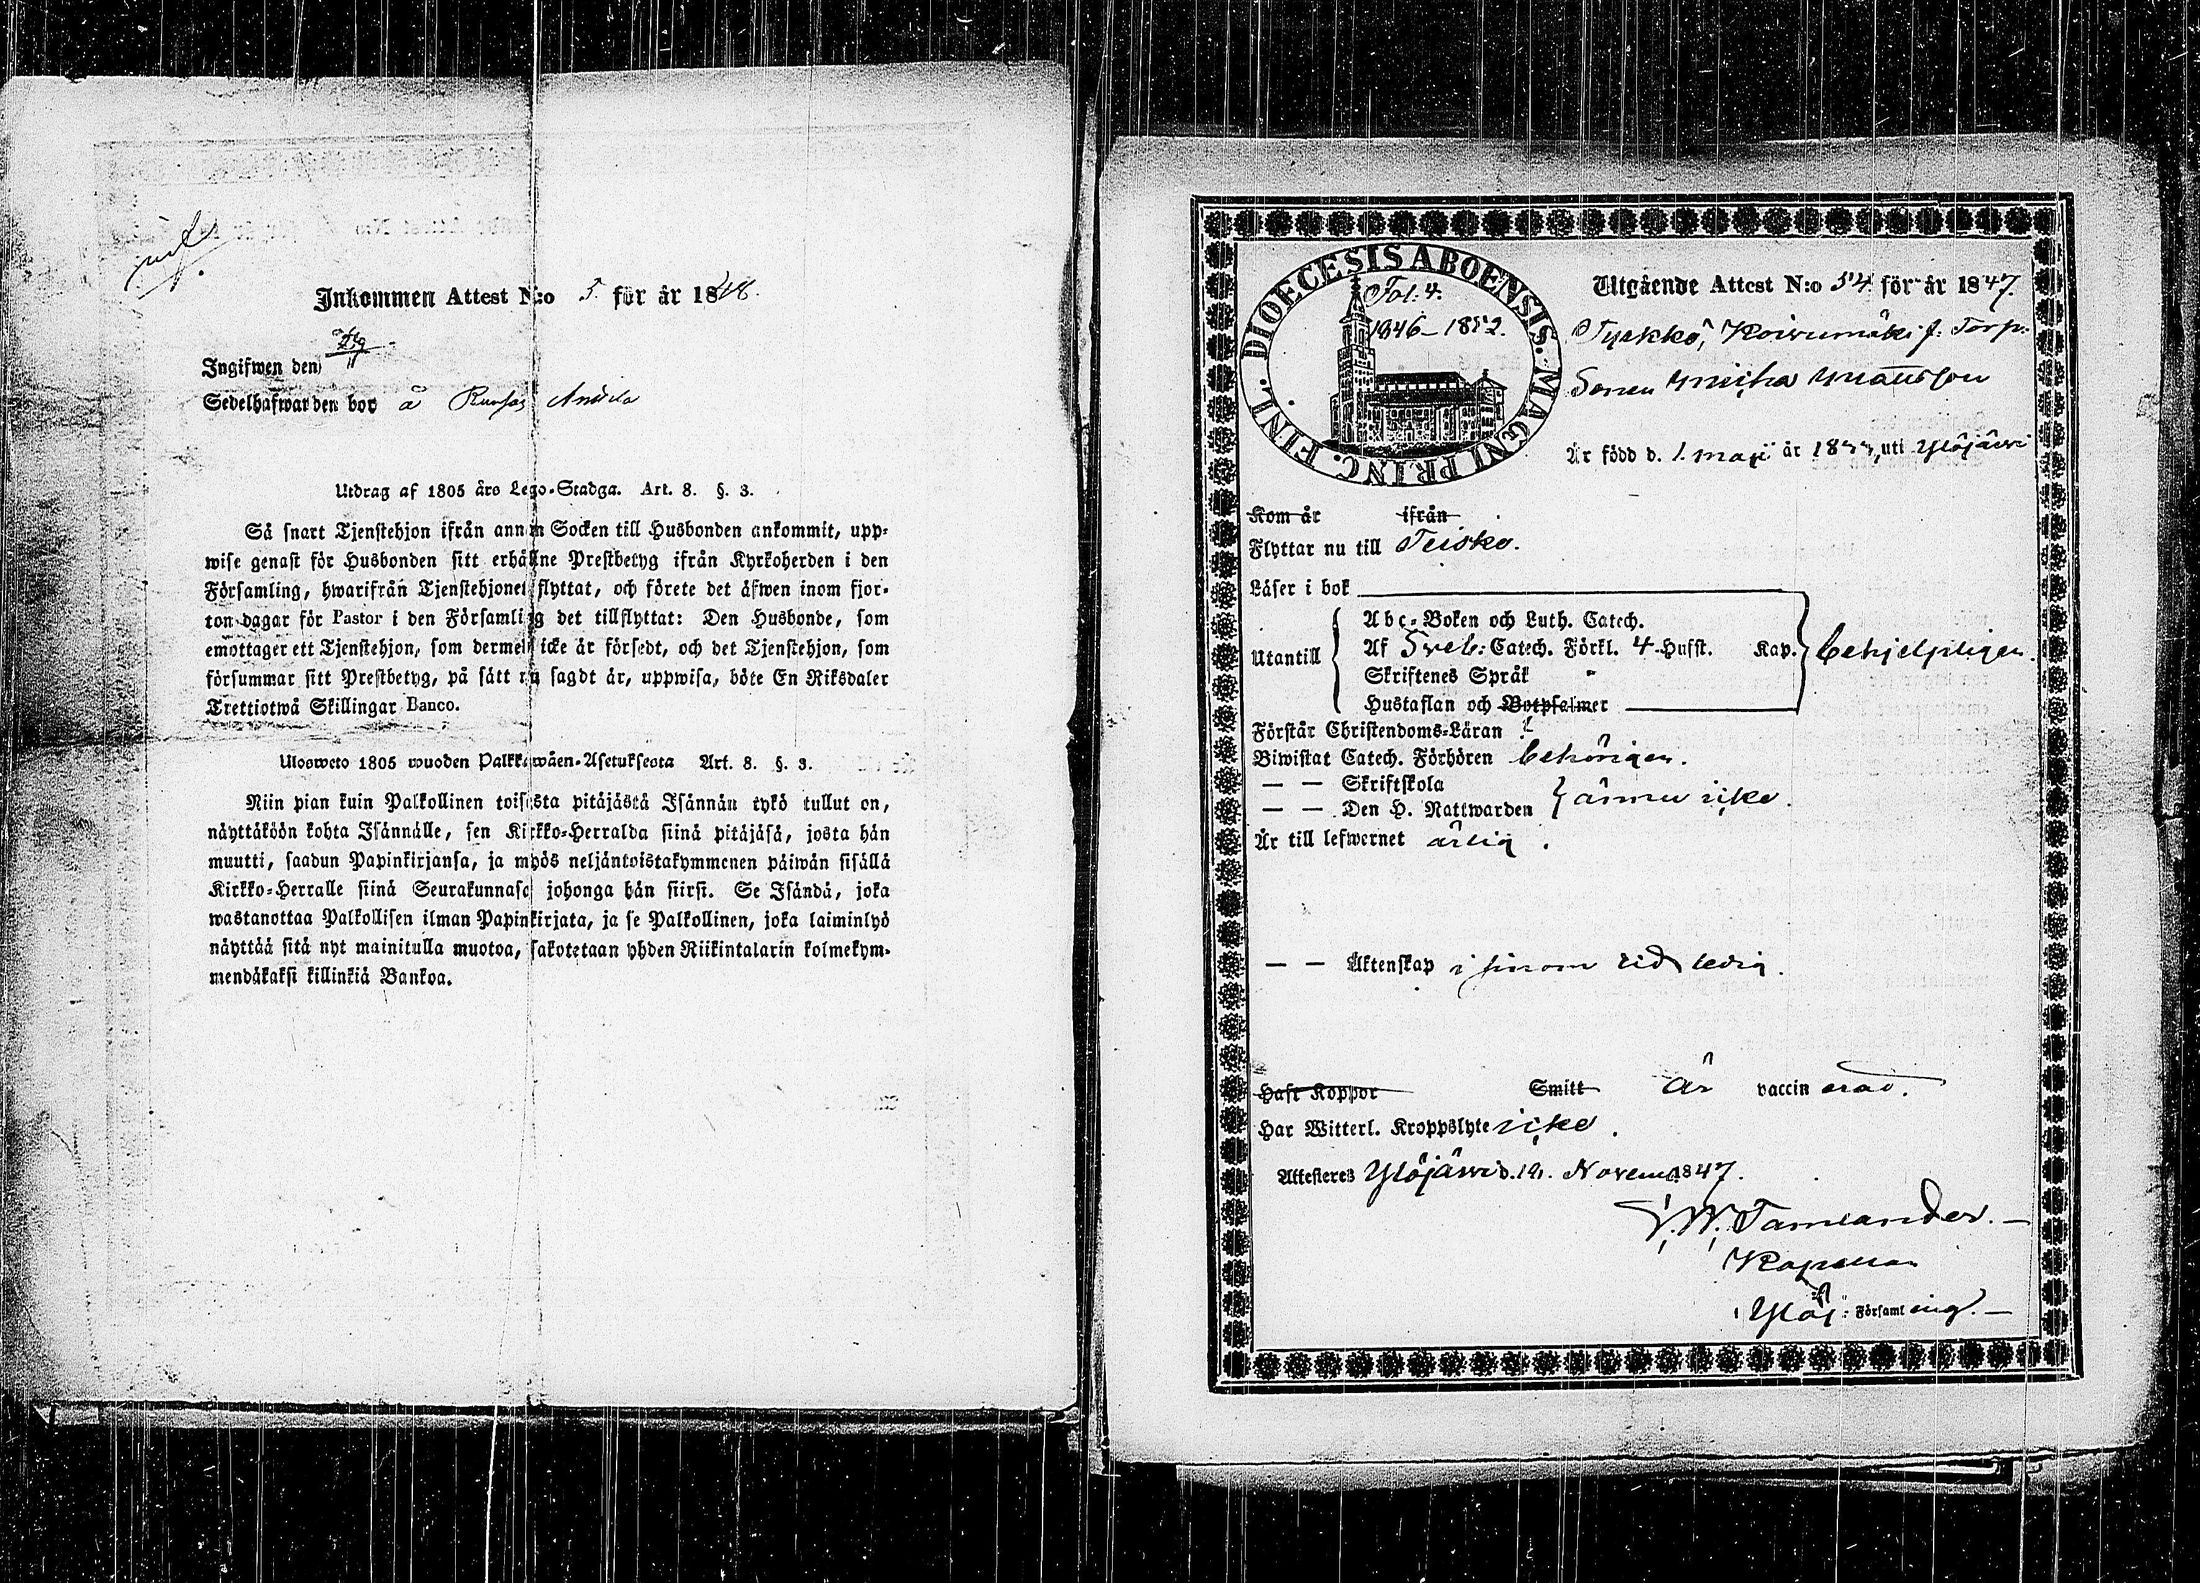 Inkommen Attest N:o 5. för år 1848.
Ingifwen den
Sedelhafwarden bor å
Utdrag af 1805 års Lego-Stadga. Art. 8. §. 3.
Så snart Tjenstehjon ifrån annan Socken till Husbonden ankommit, upp-
wise genast för Husbonden sitt erhållne Prestbetyg ifrån Kyrkoherden i den
Församling, hwarifrån Tjenstehjonet flyttat, och förete det äfwen inom fjor-
ton dagar för Pastor i den Församling det tillflyttat: Den Husbonde, som
emottager ett Tjenstehjon, som dermed icke är försedt, och det Tjenstehjon, som
försummar sitt Prestbetyg, på sätt nu sagdt är, uppwisa, böte En Riksdaler
Trettiotwå Skillingar Banco.
Ulosweto 1805 wuoden Palkkawäen-Asetuksesta Art. 8. §. 3.
Niin pian kuin Palkollinen toisesta pitäjästä Isännän tykö tullut on,
näyttäköön kohta Isännälle, sen Kirkko-Herralda siinä pitäjäsä, josta hän
muutti, saadun Papinkirjansa, ja myös neljäntoistakymmenen päiwän sisällä
Kirkko-Herralle siinä Seurakunnasa johonga hän siirsi. Se Isändä, joka
wastanottaa Palkollisen ilman Papinkirjata, ja se Palkollinen, joka laiminlyö
näyttää sitä nyt mainitulla muotoa, sakotetaan yhden Riikintalarin kolmekym-
mendäkaksi killinkiä Bankoa.
DIOECESIS ABOENSIS. MAGNI PRINC. FINL.
Fol. 4.
1846-1852.
Utgående Attest N:o 54 för år 1847.
Tyrkkö, Koivumäki f: Torp:
Sonen Matsson
Är född d. 1. maji år 1833, uti Ylöjärvi
Kom år ifrån
Flyttar nu till Teisko.
Läser i bok
Utantill
Abc-Boken och Luth. Catech.
Af Sveb: Catech. Förkl. 4 Hufst. Kap.
Skriftenes Språk
Hustaflan och Botpsalmer
behjelpligen.
Förstår Christendoms-Läran
Biwistat Catech. Förhören behörigen.
— — Skriftskola
— — Den H. Nattwarden
ännu icke.
Är till lefwernet ärlig.
— — Äktenskap i sinom tid ledig.
Haft Koppor Smitt är vaccinerad.
Har Witterl. Kroppslyte icke.
Attesteres Ylöjärvi d. 19. Novemb. 1847.
V. W. Tamlander.
Kapellan
i Ylöj: Församling.